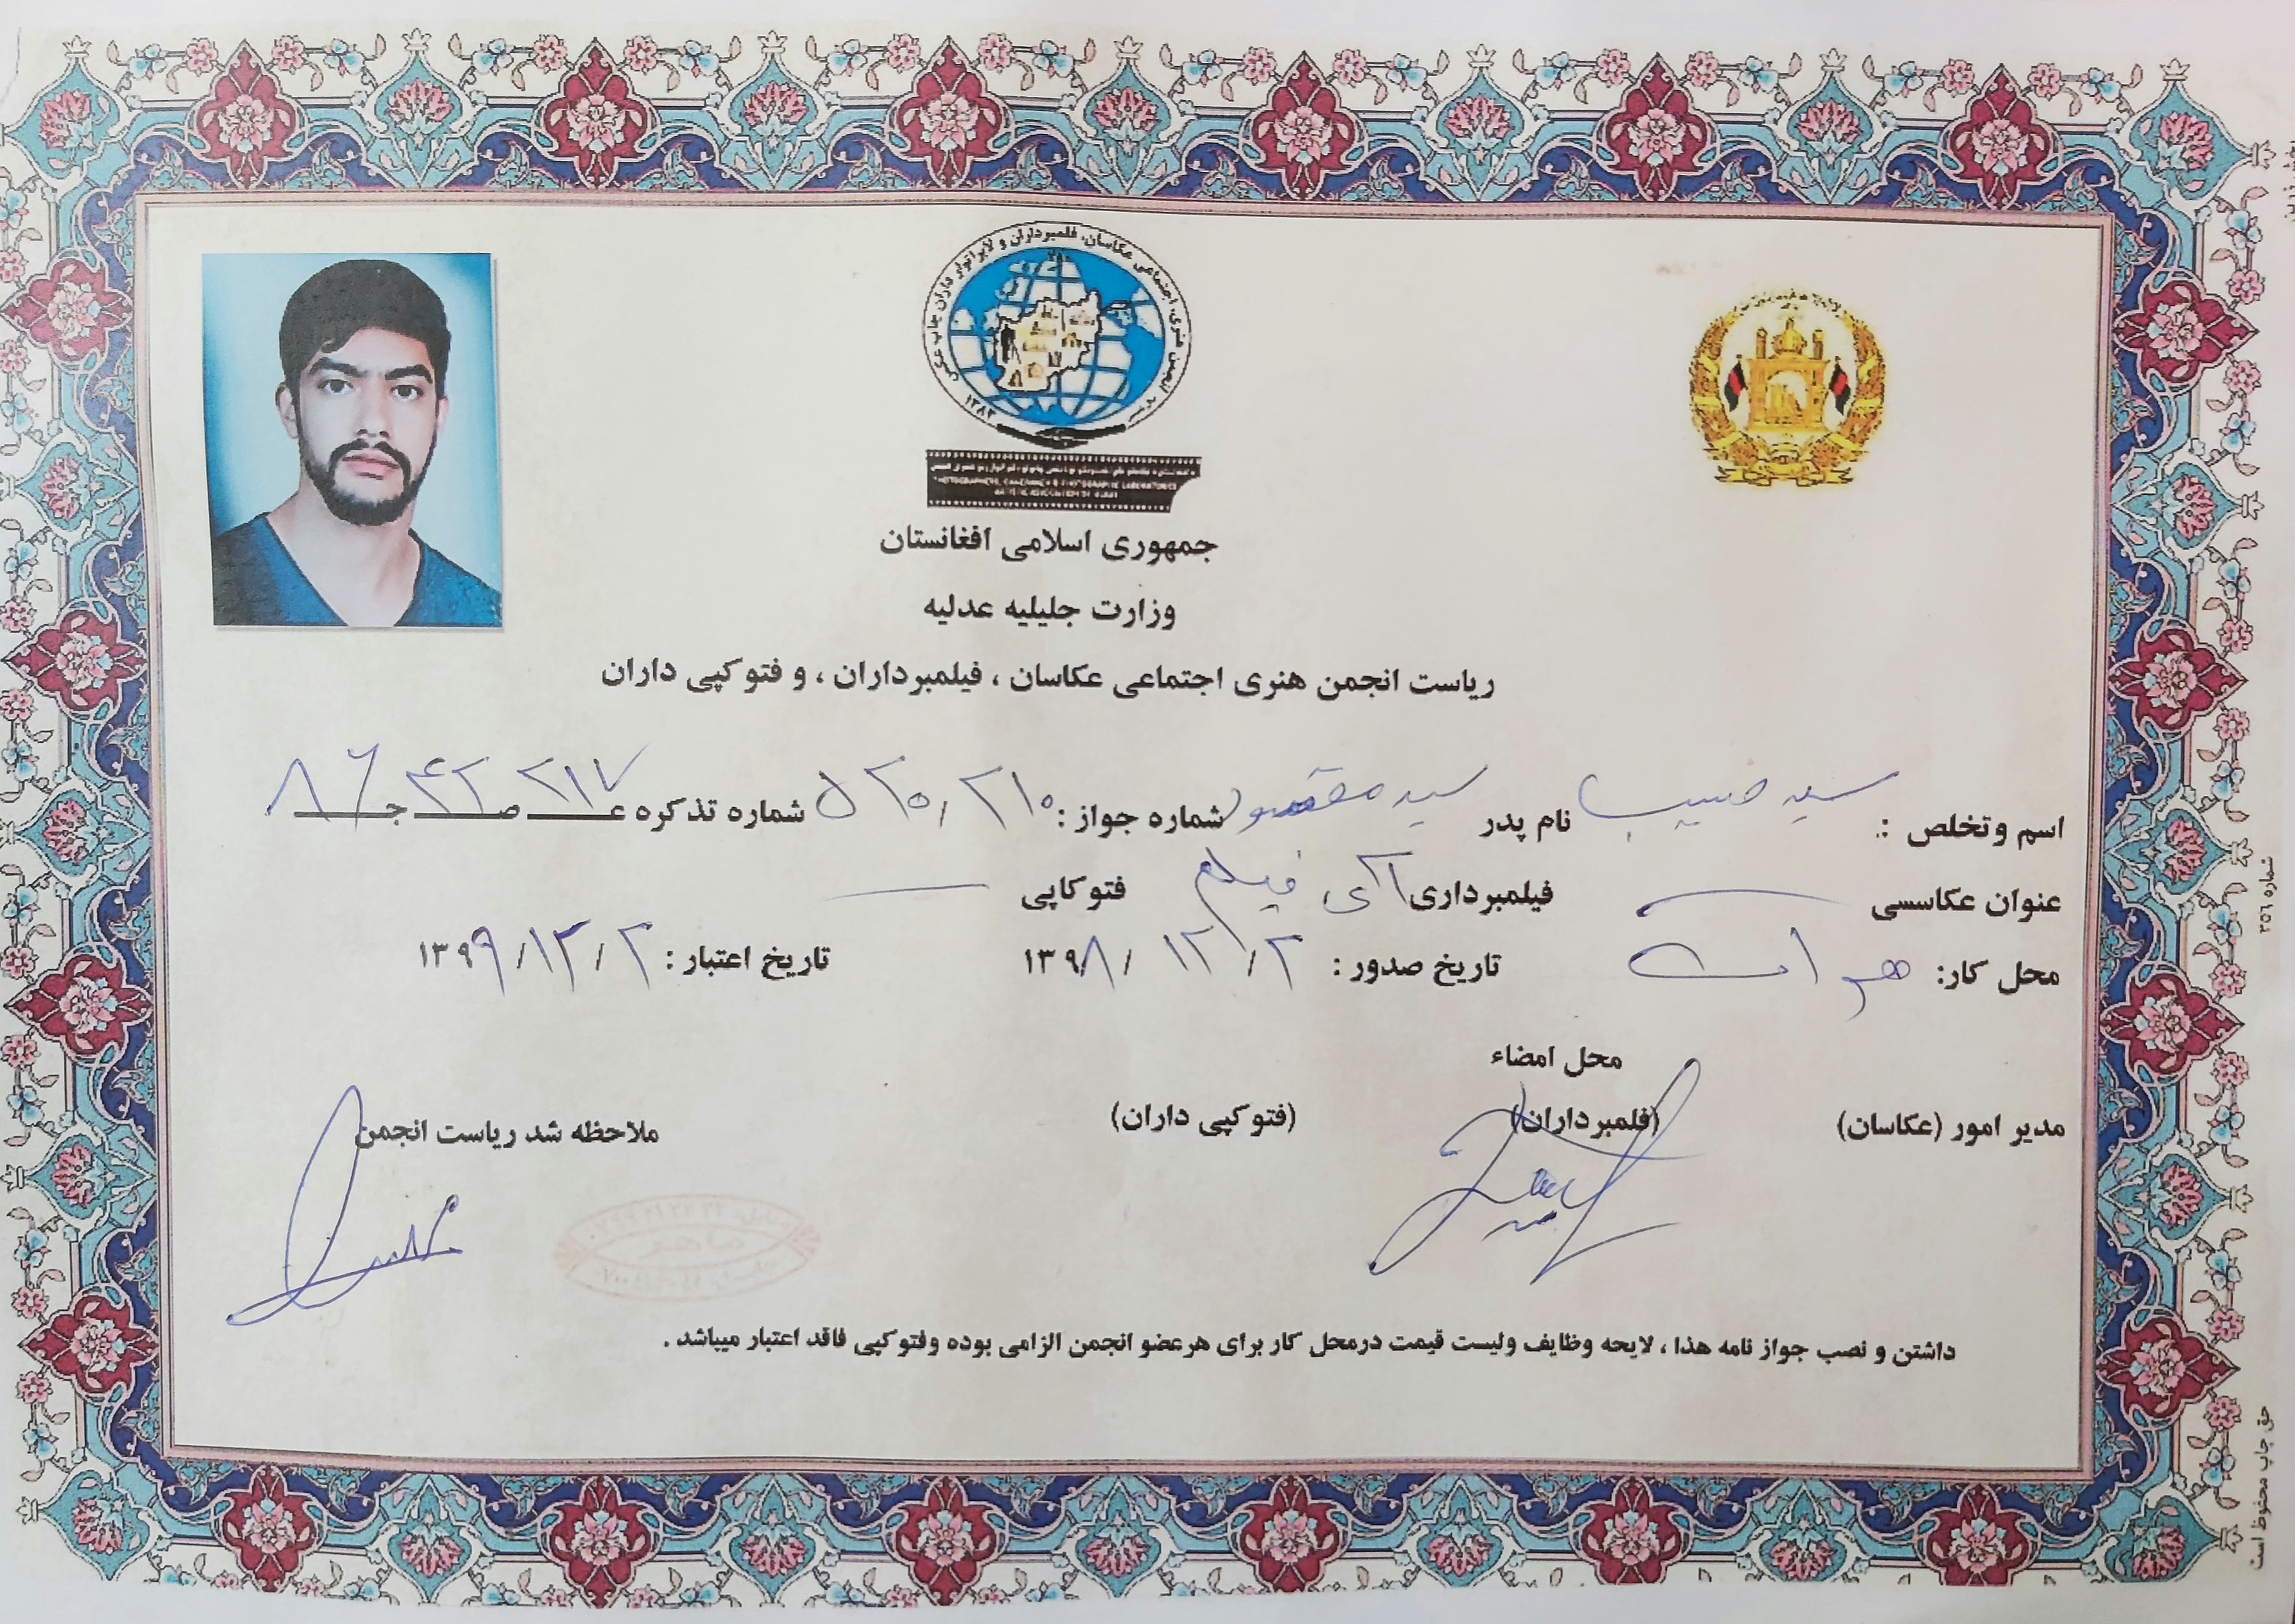 انجمن هنری، اجتماعی عکاسان، فلمبرداران و لابراتوار داران چاپ عکس
۱۳۸۳
جمهوری اسلامی افغانستان
وزارت جلیلیه عدلیه
ریاست انجمن هنری اجتماعی عکاسان ، فیلمبرداران ، و فتوکپی داران
اسم وتخلص : سید حبیب نام پدر سید مقصود شماره جواز : شماره تذکره ع ۲۱۷ ص ۴۲ ج ۸۶
عنوان عکاسسی فیلمبرداری آی فیلم فتوکاپی
محل کار: هرات تاریخ صدور : ۱۳۹۸/۱۲/۲ تاریخ اعتبار : ۱۳۹۹/۱۲/۲
محل امضاء
مدیر امور (عکاسان) (فلمبرداران) (فتوکپی داران) ملاحظه شد ریاست انجمن
ماهر
داشتن و نصب جواز نامه هذا ، لایحه وظایف ولیست قیمت درمحل کار برای هرعضو انجمن الزامی بوده وفتوکپی فاقد اعتبار میباشد .
شماره ۳۵۶
حق چاپ محفوظ است